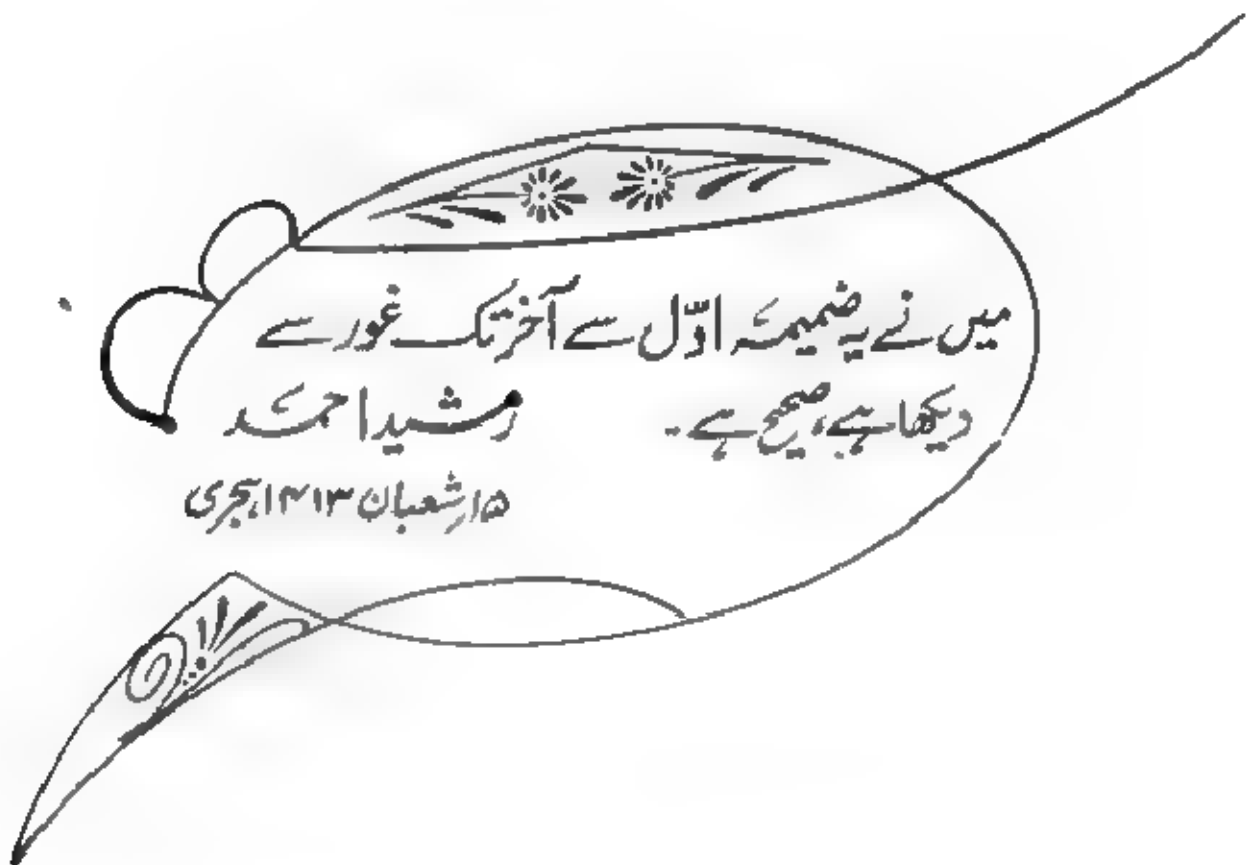 میں نے یہ ضمیمہ اوّل سے آخر تک غور سے
دیکھا ہے، صحیح ہے۔ رشید احمد
۱۵؍ شعبان ۱۴۱۳ ہجری